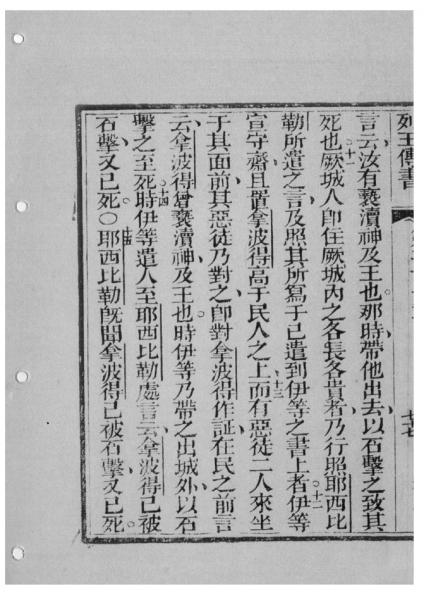 列王傳書
七十七
言云汝有褻瀆神及王也那時帶他出去以石擊之致其
死也十一厥城人即住厥城內之各長各貴者乃行照耶西比
勒所遣之言及照其所寫于已遣到伊等之書上者十二伊等
宣守齋且置拿波得高于民人之上十三而有惡徒二人來坐
于其面前其惡徒乃對之即對拿波得作証在民之前言
云拿波得曾褻瀆神及王也時伊等乃帶之出城外以石
擊之至死十四時伊等遣人至耶西比勒處言云拿波得已被
石擊又已死〇十五耶西比勒既聞拿波得已被石擊又已死